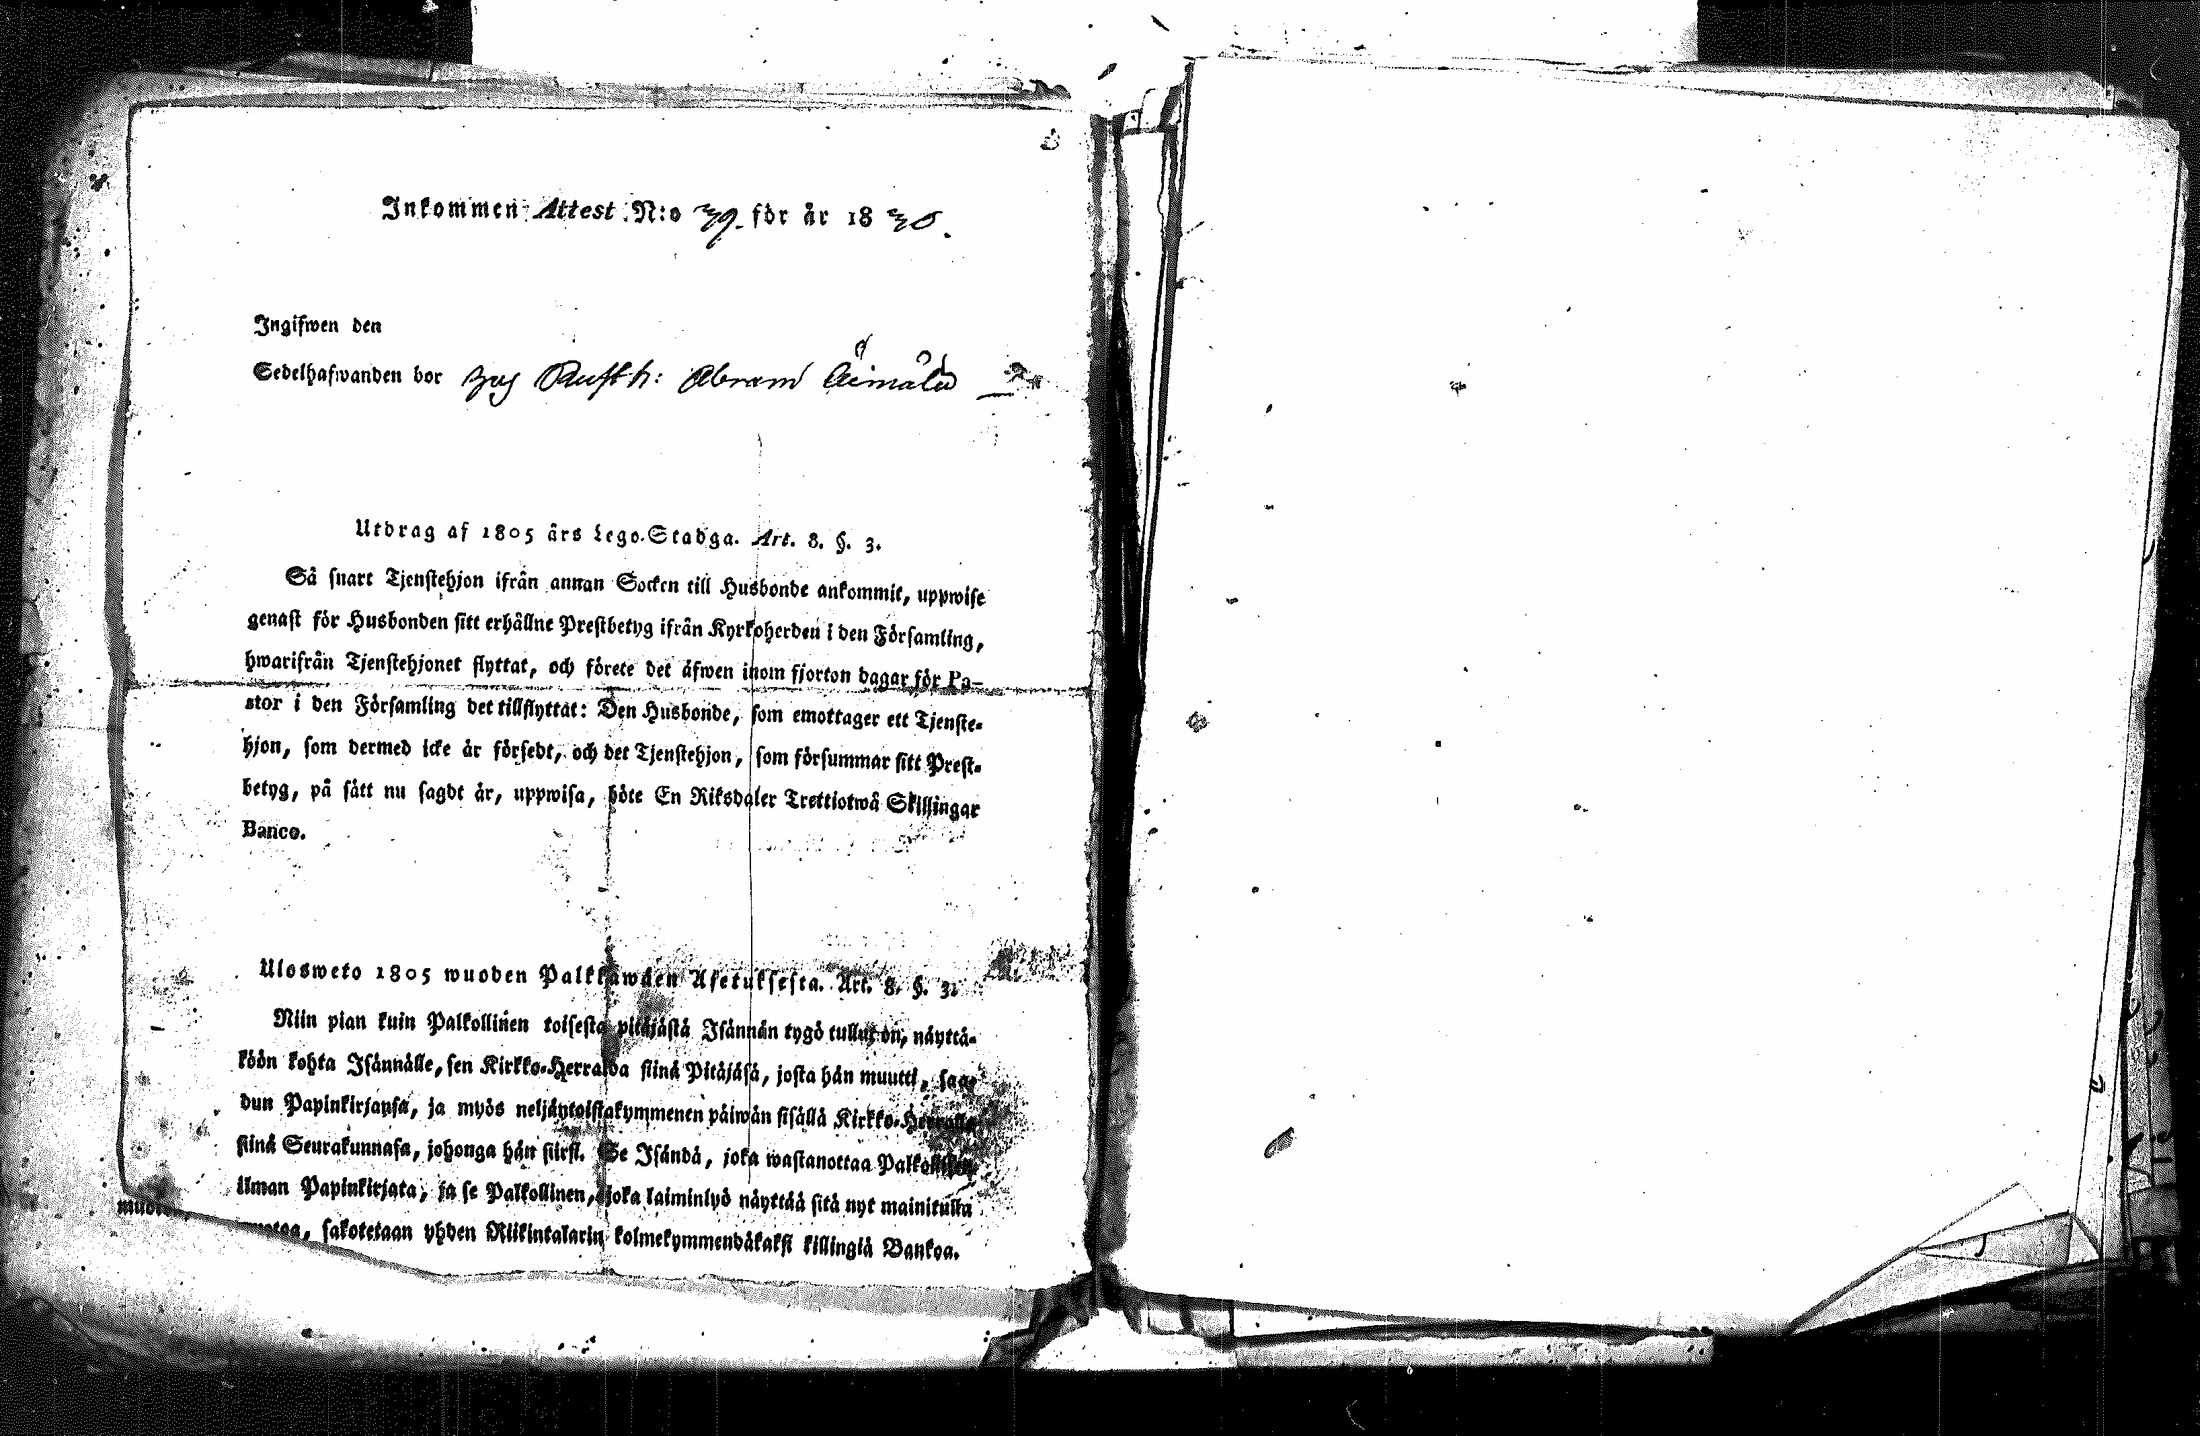 Inkommen Attest N:o 39. för år 1830.
Ingifwen den
Sedelhafwanden bor hos Rusth: Abram Äimälä
Utdrag af 1805 års Lego-Stadga. Art. 8. §. 3.
Så snart Tjenstehjon ifrån annan Socken till Husbonde ankommit, uppwise
genast för Husbonden sitt erhållne Prestbetyg ifrån Kyrkoherden i den Församling,
hwarifrån Tjenstehjonet flyttat, och förete det äfwen inom fjorton dagar för Pa-
stor i den Församling det tillflyttat: Den Husbonde, som emottager ett Tjenste-
hjon, som dermed icke är försedt, och det Tjenstehjon, som försummar sitt Prest-
betyg, på sätt nu sagdt är, uppwisa, böte En Riksdaler Trettiotwå Skillingar
Banco.
Ulosweto 1805 wuoden Palkkawäen Asetuksesta. Art. 8. §. 3.
Niin pian kuin Palkollinen toisesta pitäjästä Isännän tygö tullut on, näyttä-
köön kohta Isännälle, sen Kirkko-Herralda siinä Pitäjäsä, josta hän muutti, saa-
dun Papinkirjansa, ja myös neljäntoistakymmenen päiwän sisällä Kirkko-Herralle
siinä Seurakunnasa, johonga hän siirsi. Se Isändä, joka wastanottaa Palkollisen
ilman Papinkirjata, ja se Palkollinen, joka laiminlyö näyttää sitä nyt mainitulla
muotoa, sakotetaan yhden Riikintalarin kolmekymmendäkaksi killingiä Bankoa.